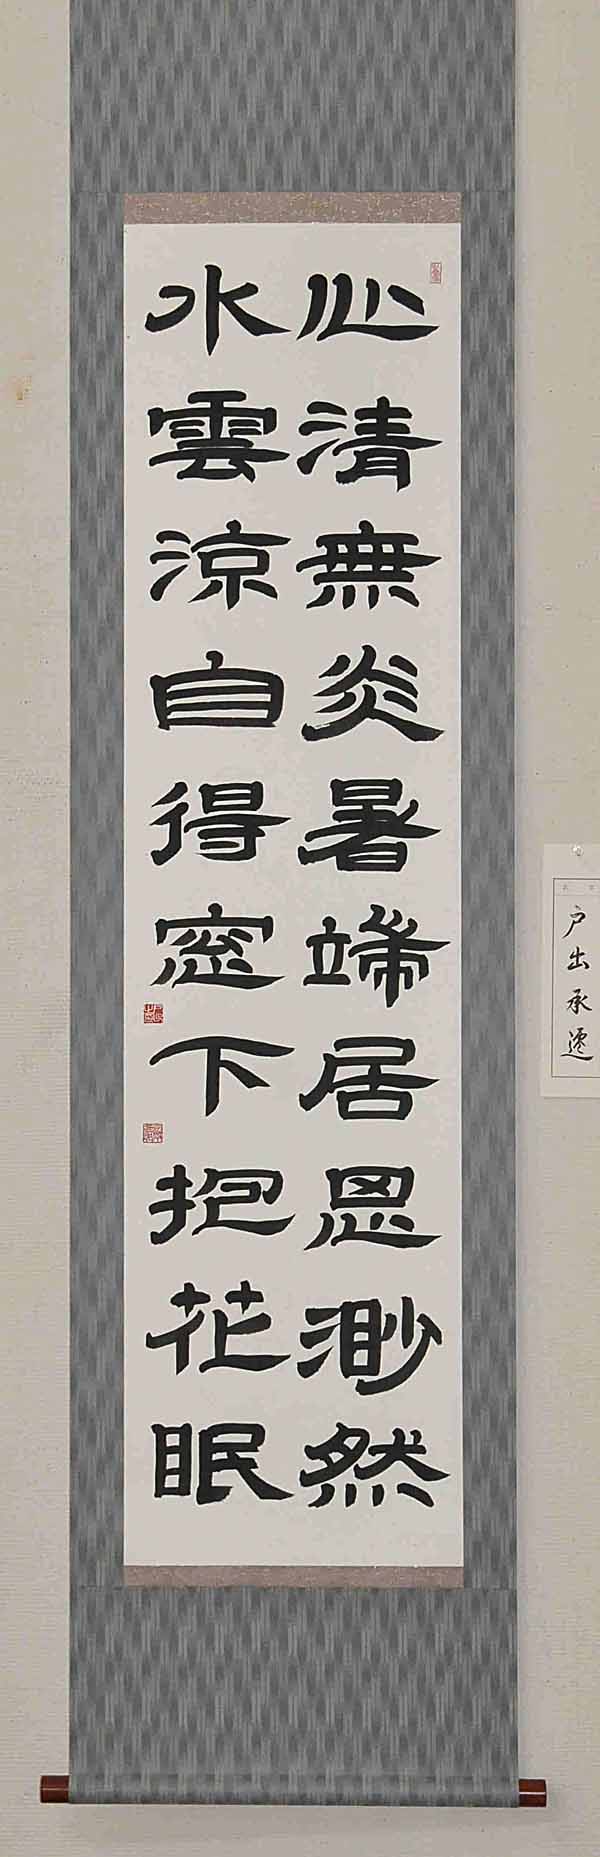 心清無炎暑端居思渺然
水雲涼自得窓下抱花眠
戸出承遷